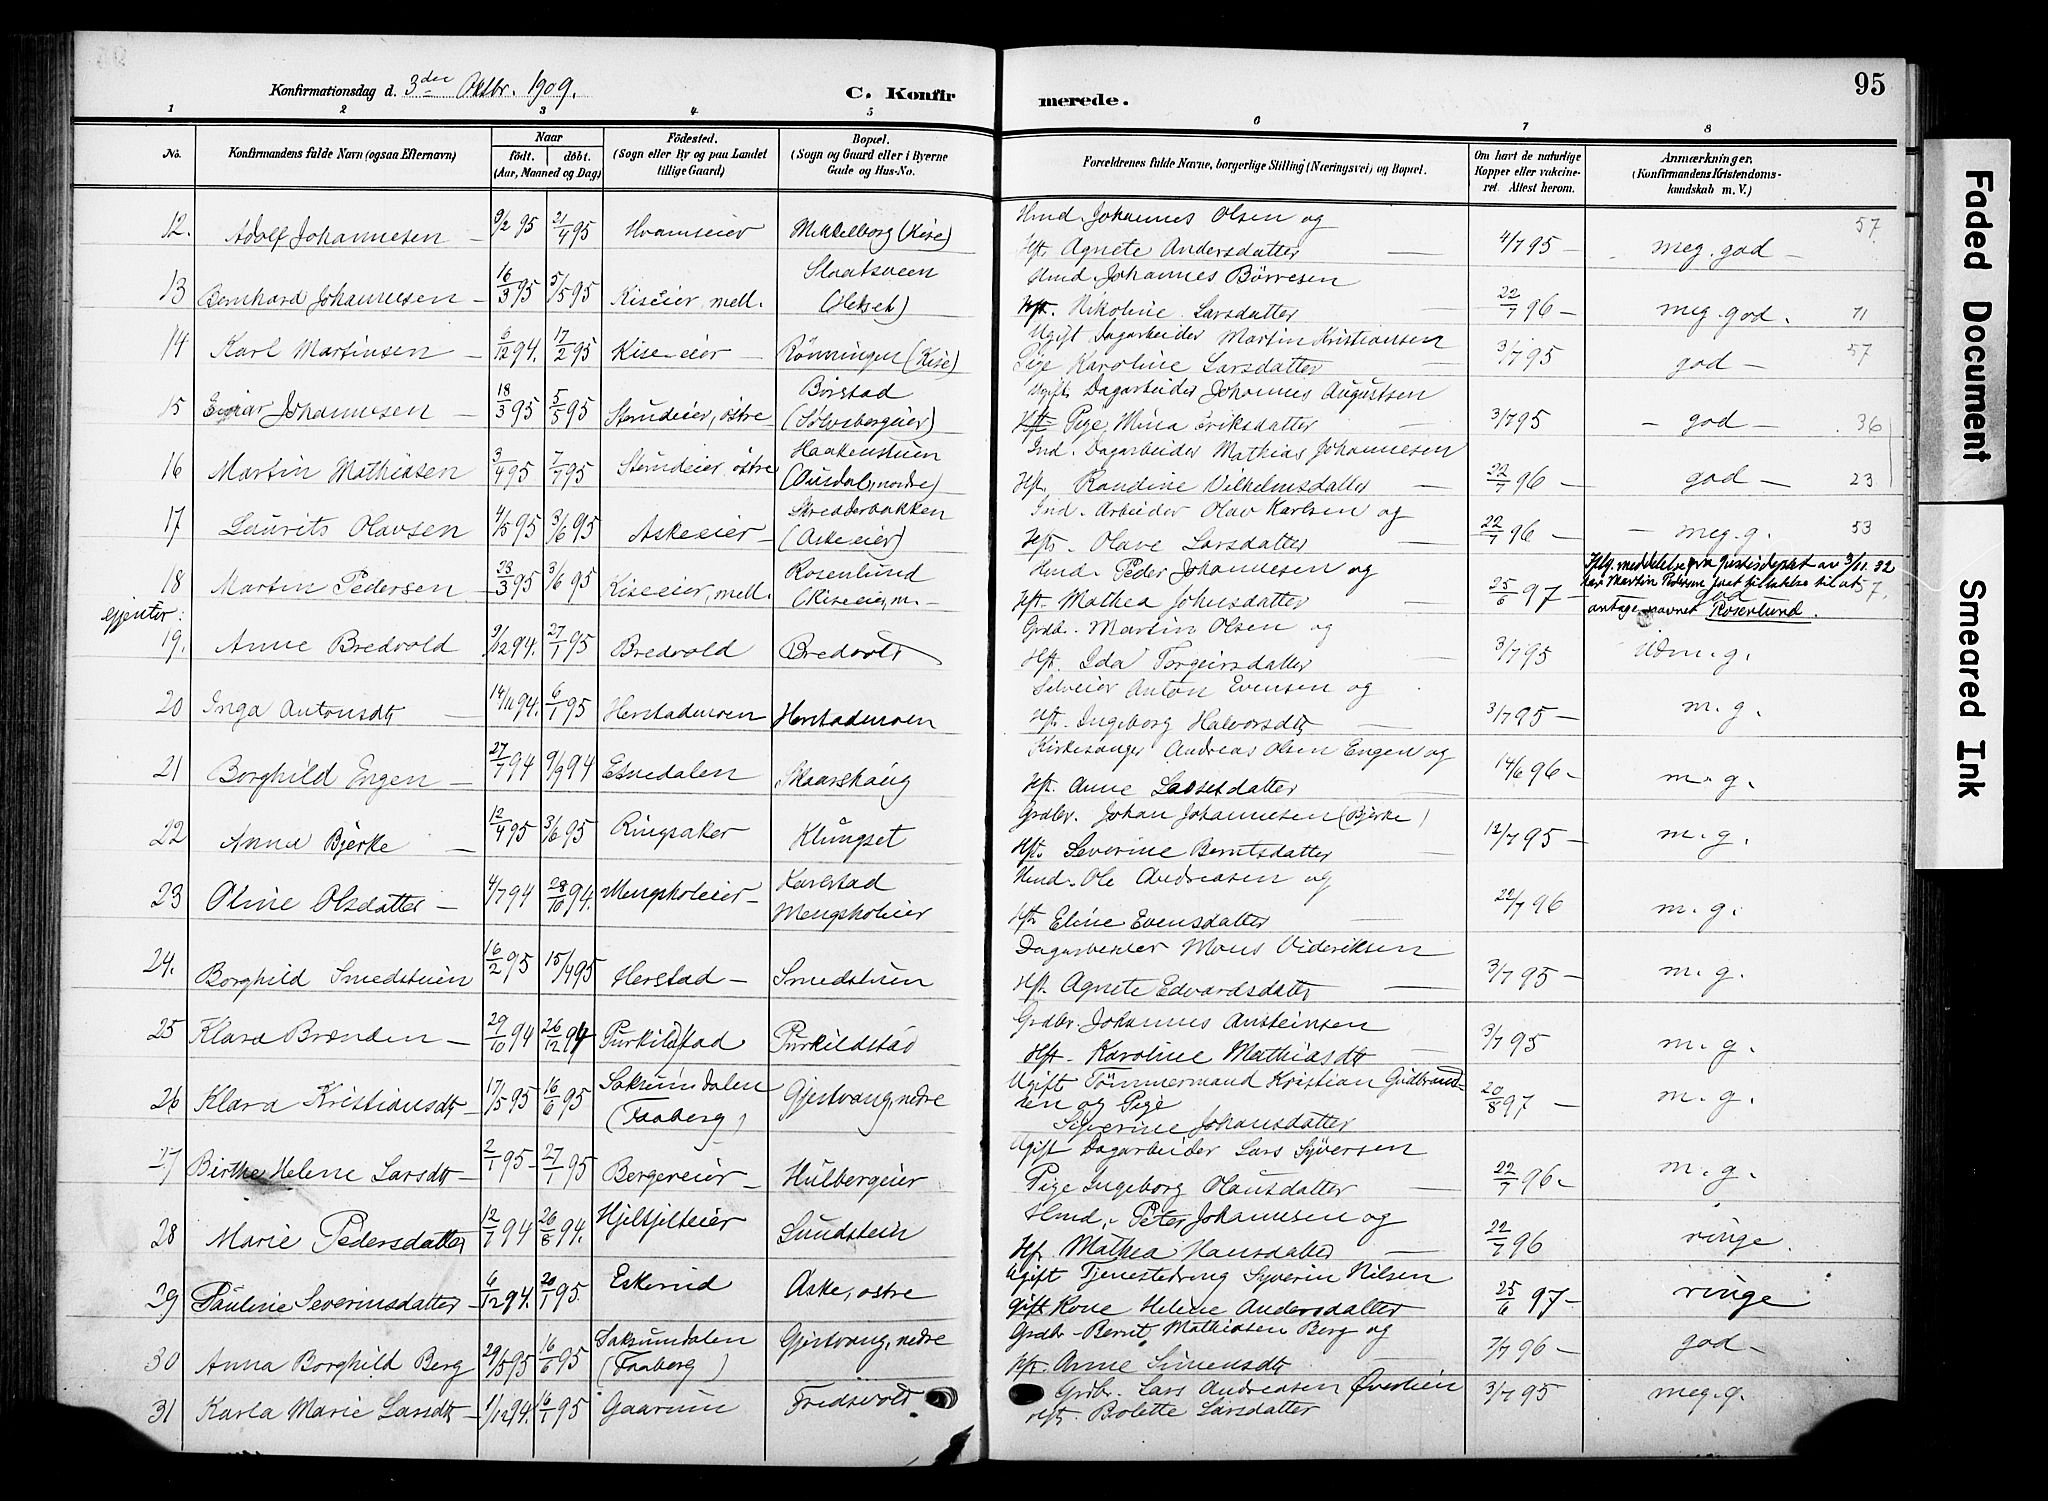 Konfirmationsdag d. 3die Oktbr. 1909.
C. Konfirmerede.
95
1 2 3 4 5 6 7 8
No.
Konfirmandens fulde Navn (ogsaa Efternavn)
Naar
födt. döbt.
(Aar, Maaned og Dag)
Födested.
(Sogn eller By og paa Landet
tillige Gaard)
Bopæl.
(Sogn og Gaard eller i Byerne
Gade og Hus-No.
Forældrenes fulde Navne, borgerlige Stilling (Næringsvei) og Bopæl.
Om havt de naturlige
Kopper eller vakcine-
ret. Attest herom.
Anmærkninger.
(Konfirmandens Kristendoms-
kundskab m. V.)
12. Adolf Johannesen 9/2 95 21/4 95 Hvamseier Mikkelborg (Kise) Hmd. Johannes Olsen og
Hft. Agnete Andersdatter 4/7 95 meg. god 57
13 Bernhard Johannesen 16/3 95 5/5 95 Kiseeier, mell. Slaatsveen
(Hekset) Hmd. Johannes Börresen
Hft. Nikoline Larsdatter 22/7 96 meg. god. 71
14 Karl Martinsen 6/12 94. 17/2 95 Kiseeier Rönningen (Kise) Ugift Dagarbeider Martin Kristiansen
Pige Karoline Larsdatter 3/7 95 god 57
15 Einar Johannesen 18/3 95 5/5 95 Strudeier, östre Börstad
(Sölvsbergeier) Ugift Dagarbeider Johannes Augustsen
Pige Mina Eriksdatter 3/7 95 god 36
16 Martin Mathiasen 3/4 95 7/7 95 Strudeier, östre Haakenstuen
(Ausdal, nordre) Ind. Dagarbeider Mathias Johannesen
Hft. Randine Vilhelmsdatter 22/7 96 god 23
17 Laurits Olavsen 4/5 95 3/6 95 Askeeier Skredderbakken
(Askeeier) Ind. Arbeider Olav Karlsen og
Hft. Olave Larsdatter 22/7 96 meg. g. 53
18 Martin Pedersen 23/3 95 3/6 95 Kiseeier, mell. Rosenlund
(Kiseeier, m. Hmd. Peder Johannesen og
Hft. Mathea Johnsdatter 25/6 97 god 57.
Iflg. meddelelse fra Justisdepartet av 3/11. 32
har Martin Pedersen faaet tillatelse til at
antage navnet Rosenlund.
Gjenter:
19. Anne Bredvold 9/12 94. 27/1 95 Bredvold Bredvold Grdbr. Martin Olsen og
Hft. Ida Torgeirsdatter 3/7 95 Udm. g.
20 Inga Antonsdt 14/11 94. 6/1 95 Herstadmoen Herstadmoen Selveier Anton Evensen og
Hft. Ingeborg Halvorsdtt 3/7 95 m. g.
21 Borghild Engen 27/7 94 9/9 94 Etnedalen Skaarshaug Kirkesanger Andreas Olsen Engen og
Hft. Anne Lassesdatter 14/6 96 m. g.
22 Anna Bjerke 12/4 95 3/6 95 Ringsaker Klungset Grdbr. Johan Johannesen (Bjerke)
Hft. Severine Berntsdatter 12/7 95 m. g.
23 Oline Olsdatter 4/7 94 28/10 94. Mengsholeier Karlstad
Mengsholeier Hmd. Ole Andreasen og
Hft. Eline Evensdatter 22/7 96 m. g.
24. Borghild Smedstuen 16/2 95 15/4 95 Herstad Smedstuen Dagarbeider Mons Dideriksen
Hft. Agnete Edvardsdatt 3/7 95 m. g.
25 Klara Brenden 29/10 94 26/12 94 Purkildstad Purkildstad Grdbr. Johannes Austeinsen
Hft. Karoline Mathiasdtt 3/7 95 m. g.
26 Klara Kristiansdtt 17/5 95 16/6 95 Saksumdalen
(Faaberg) Gjestvang, nedre Ugift Tömmermand Kristian Gudbrand-
sen og Pige
Syverine Johansdatter 20/8 97 m. g.
27 Birthe Helene Larsdtt 2/1 95 27/1 95 Bergereier Hulbergeier Ugift Dagarbeider Lars Syversen
Pige Ingeborg Olausdatter 22/7 96. m. g.
28 Marie Pedersdatter 12/7 94 26/8 94. Hjelsjeleier Sundstein Hmd. Peter Johannesen og
Hf. Mathea Hansdatter 22/7 96 ringe.
29 Pauline Severinsdatter 6/12 94. 20/1 95. Eskerud Aske, östre Ugift Tjenestedreng Syverin Nilsen
gift Kone Helene Andersdatter 25/6 97 ringe
30 Anna Borghild Berg 29/5 95 16/6 95 Saksumdalen
(Faaberg) Gjestvang, nedre Grdbr. Bernt Mathiasen Berg og
Hft. Anne Simensdtt 7/7 96 god
31 Karla Marie Larsdtt 1/12 94. 6/1 95 Gaarum Fredsvold Grdbr. Lars Andreasen Överlien
Hft. Bolette Larsdatter 3/7 95 meg. g.
Faded Document
Smeared Ink